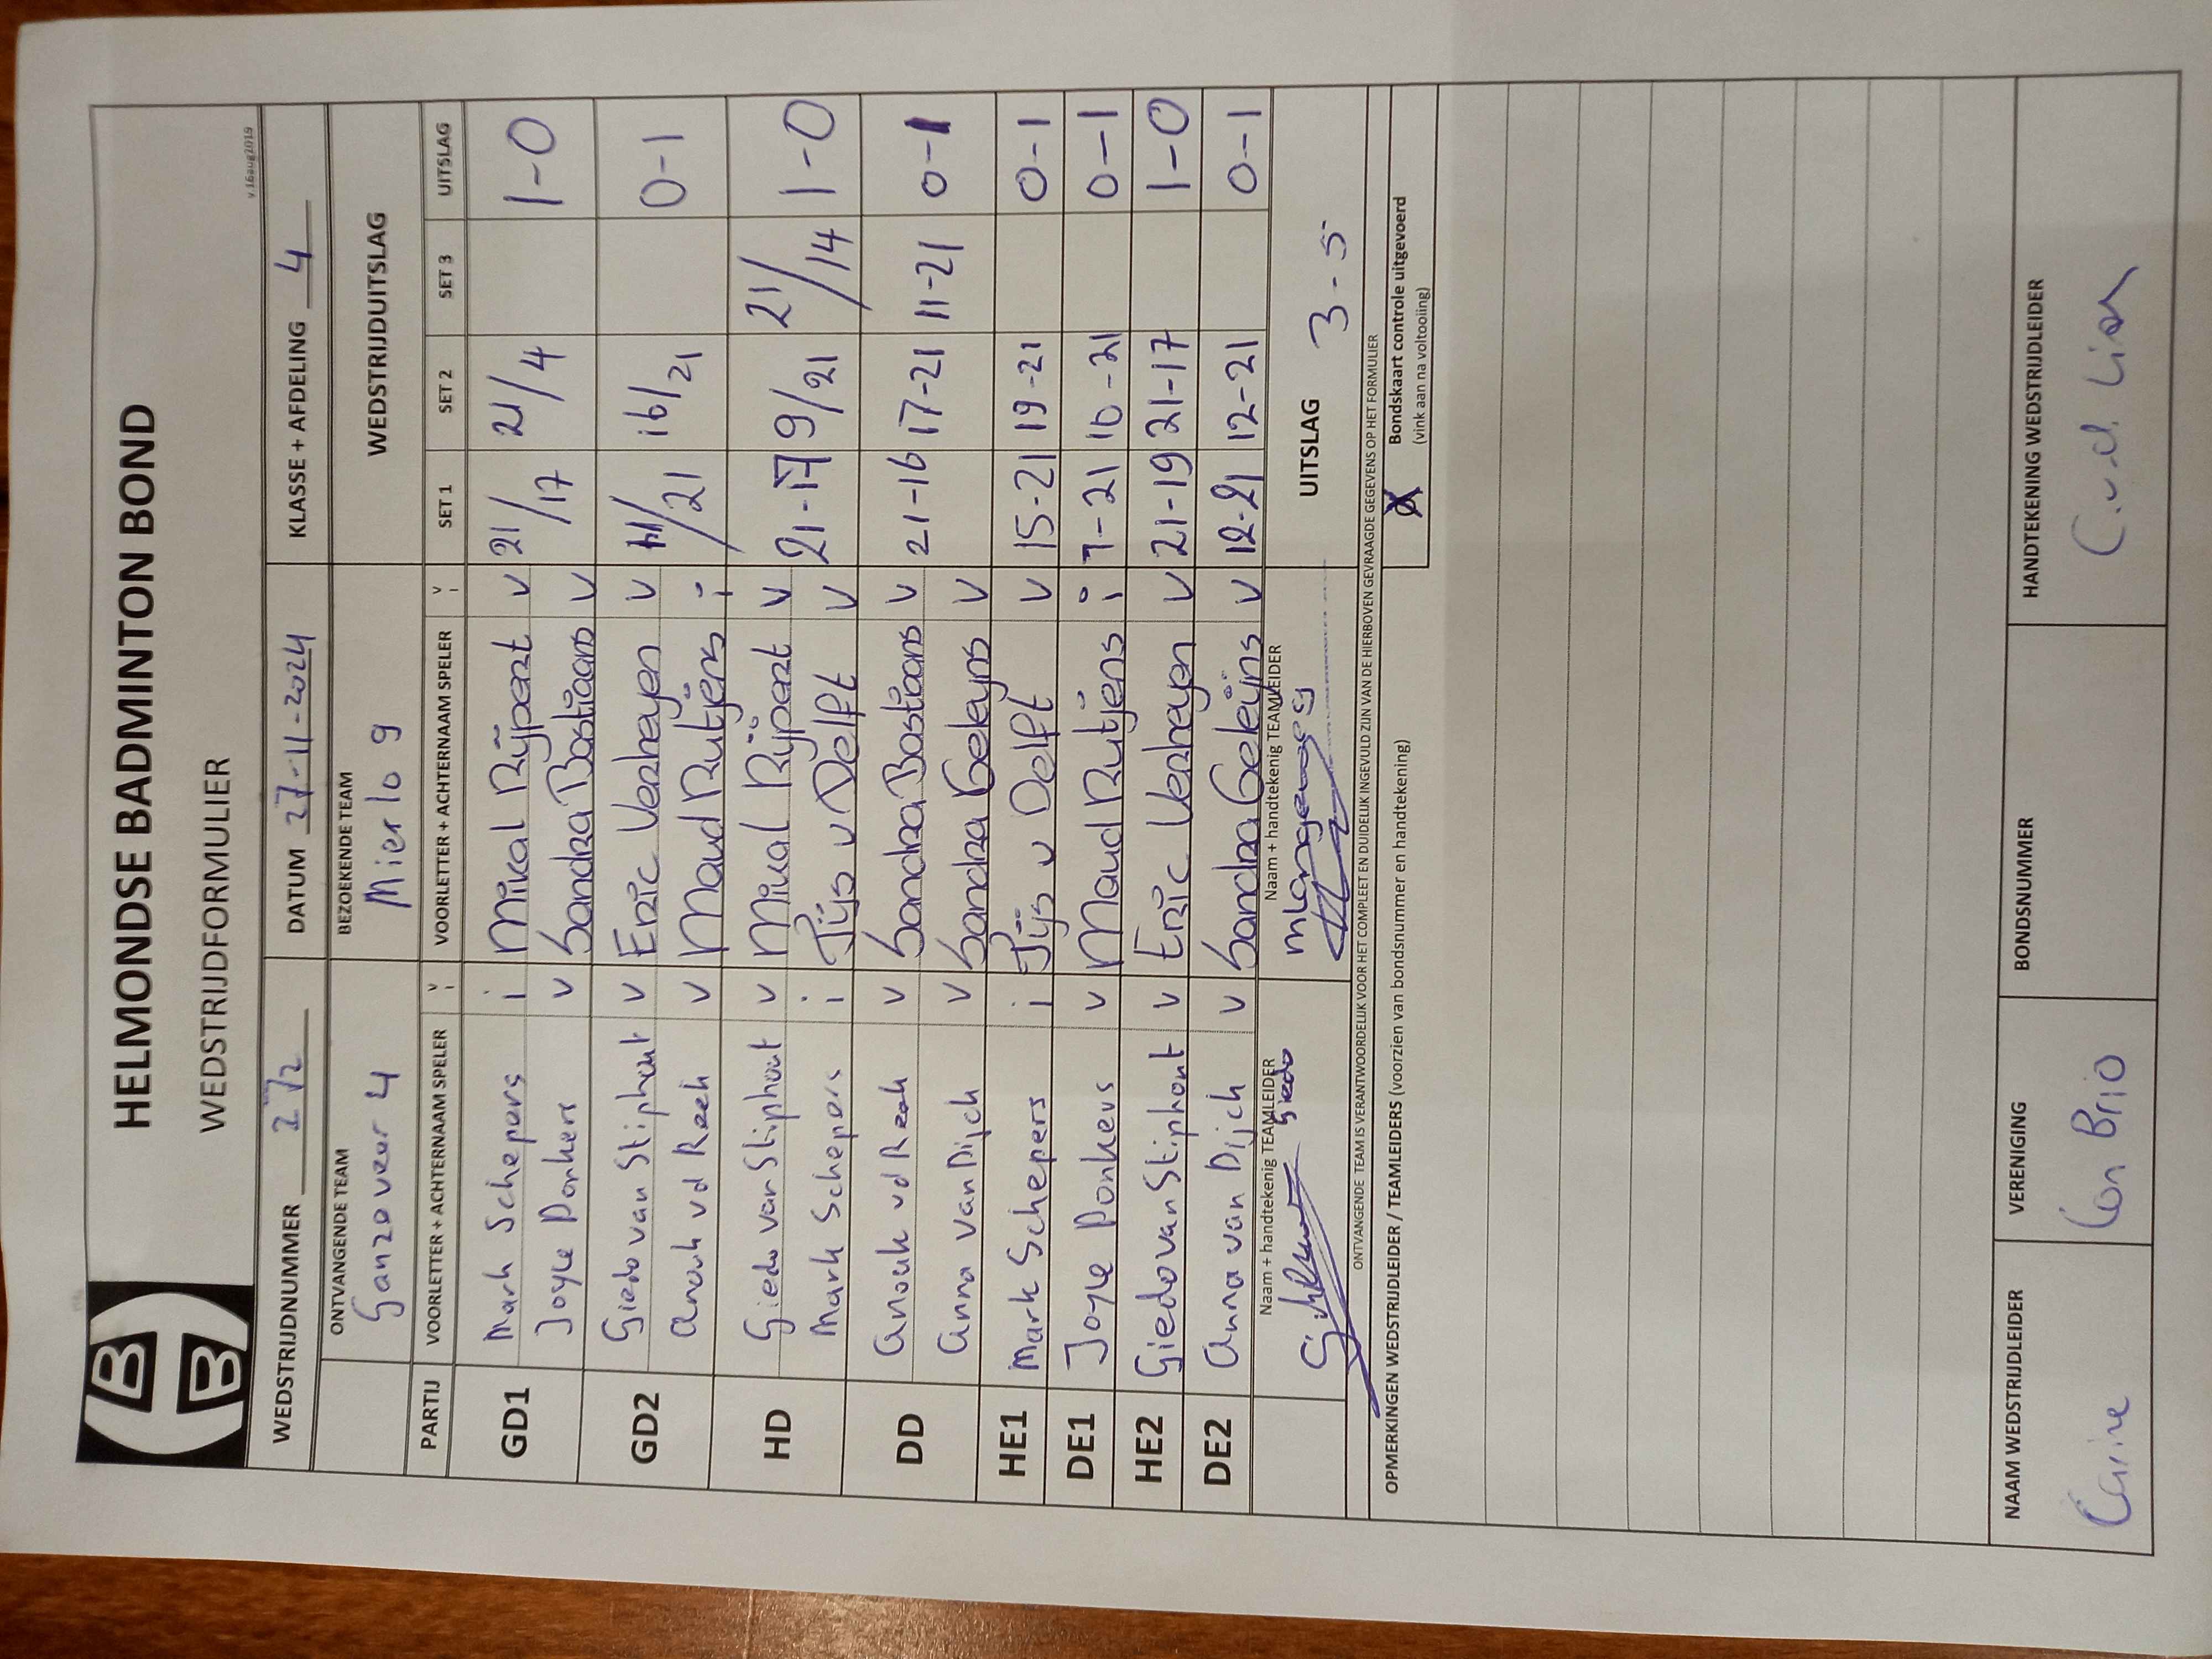 HELMONDSE BADMINTON BOND
WEDSTRIJDFORMULIER
v.16aug2019
WEDSTRIJDNUMMER 272 DATUM 27-11-2024 KLASSE + AFDELING 4
ONTVANGENDE TEAM BEZOEKENDE TEAM WEDSTRIJDUITSLAG
Ganzeveer 4 Mierlo 9
PARTIJ VOORLETTER + ACHTERNAAM SPELER V I VOORLETTER + ACHTERNAAM SPELER V I SET 1 SET 2 SET 3 UITSLAG
GD1 Mark Schepers i Mical Rijpert v 21/17 21/4 1-0
Joyce Donkers v Sandra Bastiaans v
GD2 Giedo van Stiphout v Eric Verheyen v /21 16/21 0-1
Anouk vd Reek v Maud Rutjens i
HD Giedo van Stiphout v Mical Rijpert v 21-17 9/21 21/14 1-0
Mark Schepers i Tijs v Delft v
DD Anouk vd Reek v Sandra Bastiaans v 21-16 17-21 11-21 0-1
Anna van Dijck v Sandra Geleijns v
HE1 Mark Schepers i Tijs v Delft v 15-21 19-21 0-1
DE1 Joyce Donkers v Maud Rutjens i 7-21 10-21 0-1
HE2 Giedo van Stiphout v Eric Verheyen v 21-19 21-17 1-0
DE2 Anna van Dijck v Sandra Geleijns v 12-21 12-21 0-1
Naam + handtekenig TEAMLEIDER Naam + handtekenig TEAMLEIDER
Giedo
UITSLAG 3-5
ONTVANGENDE TEAM IS VERANTWOORDELIJK VOOR HET COMPLEET EN DUIDELIJK INGEVULD ZIJN VAN DE HIERBOVEN GEVRAAGDE GEGEVENS OP HET FORMULIER
OPMERKINGEN WEDSTRIJDLEIDER / TEAMLEIDERS (voorzien van bondsnummer en handtekening)
X Bondskaart controle uitgevoerd
(vink aan na voltooiing)
NAAM WEDSTRIJDLEIDER VERENIGING BONDSNUMMER HANDTEKENING WEDSTRIJDLEIDER
Carine Con Brio C.v.d.